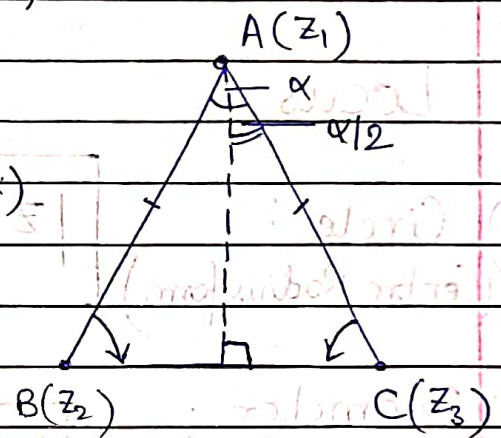 A(Z₁)
α
α/2
B(Z₂)
C(Z₃)